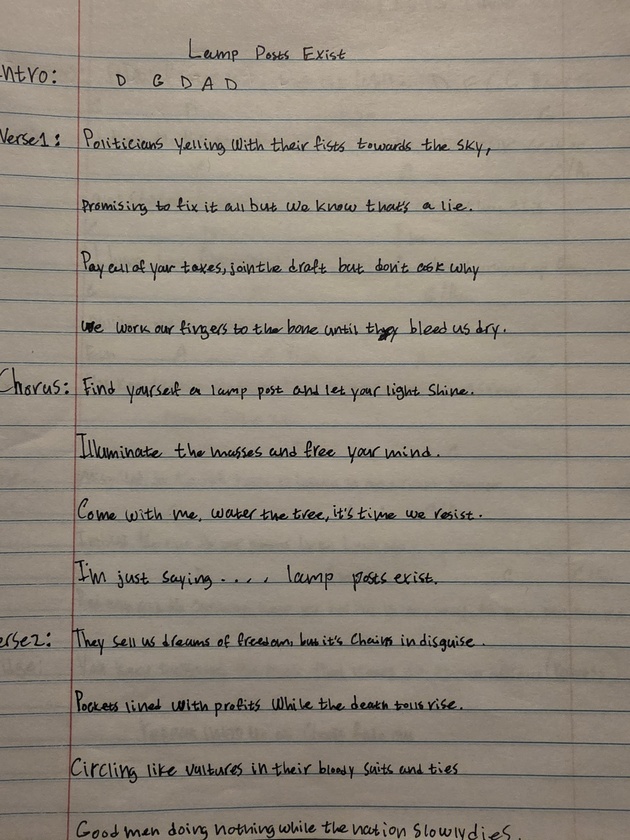 Lamp Posts Exist
Intro: D G D A D
Verse1: Politicians yelling with their fists towards the sky,
Promising to fix it all but we know that's a lie.
Pay all of your taxes, join the draft but don't ask why
we work our fingers to the bone until they bleed us dry.
Chorus: Find yourself a lamp post and let your light shine.
Illuminate the masses and free your mind.
Come with me, water the tree, it's time we resist.
I'm just saying.... lamp posts exist.
erse2: They sell us dreams of freedom, but it's chains in disguise.
Pockets lined with profits while the death tolls rise.
Circling like vultures in their bloody suits and ties
Good men doing nothing while the nation slowly dies.